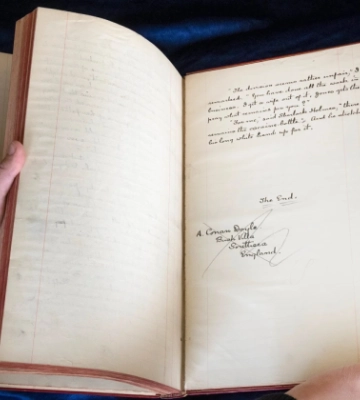 "The division seems rather unfair," I
remarked. "You have done all the work in
business. I get a wife out of it, Jones gets the
pray what remains for you?"
"For me," said Sherlock Holmes, "there
remains the cocaine-bottle". And he stretched
his long white hand up for it.
The End.
A. Conan Doyle
Bush Villa
Southsea
England.